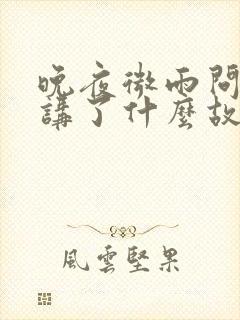 晚夜微雨問
講了什麼故
風雲堅果